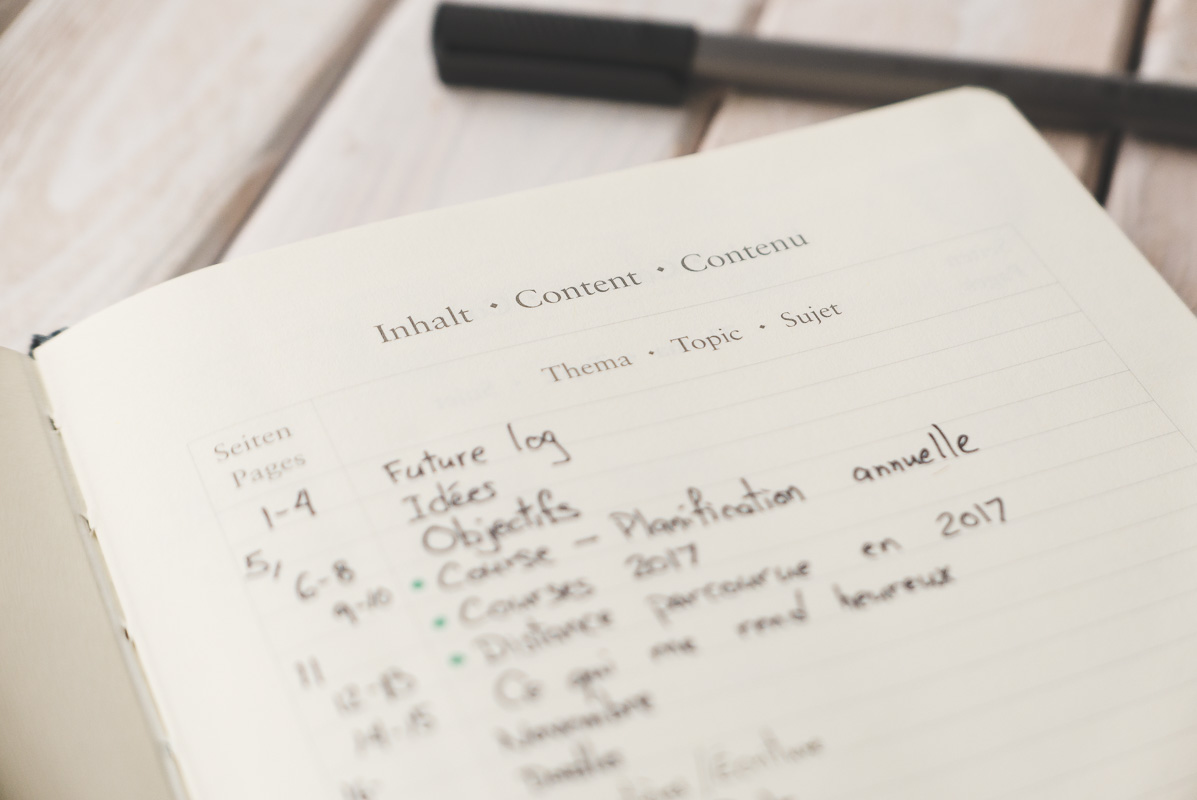 Inhalt • Content • Contenu
Thema • Topic • Sujet
Seiten
Pages
1-4 Future log
5, Idées
6-8 Objectifs
9-10 • Course – Planification annuelle
• Courses 2017
11 • Distance parcourue en 2017
12-13 Ce qui me rend heureux
14-15 Novembre